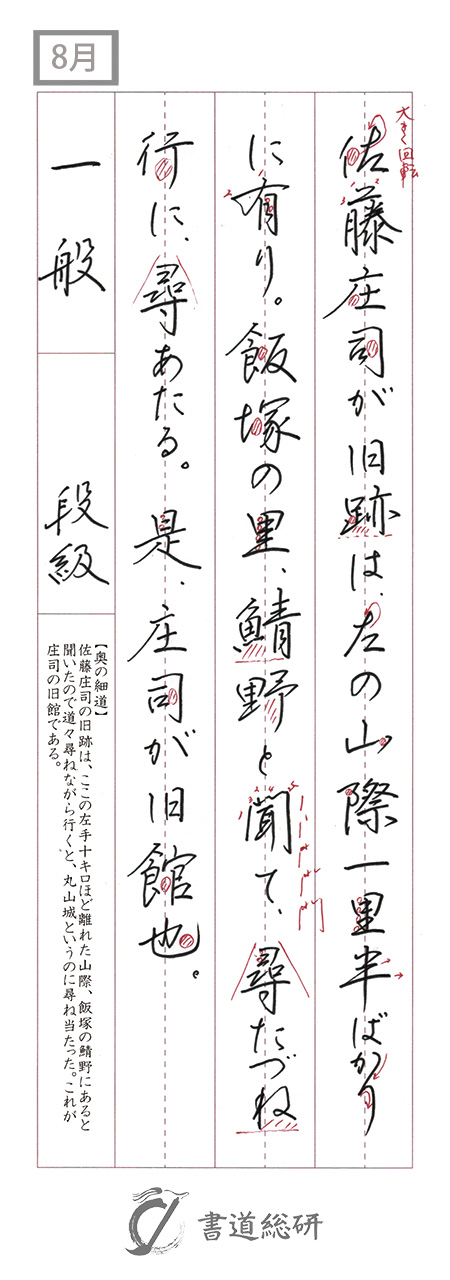 8月
大きく回転
佐藤庄司が旧跡は、左の山際一里半ばかり
に有り。飯塚の里、鯖野と聞て、尋たづね
行に、尋あたる。是、庄司が旧館也。
一般 段級
【奥の細道】
佐藤庄司の旧跡は、ここの左手十キロほど離れた山際、飯塚の鯖野にあると
聞いたので道々尋ねながら行くと、丸山城というのに尋ね当たった。これが
庄司の旧館である。
書道総研